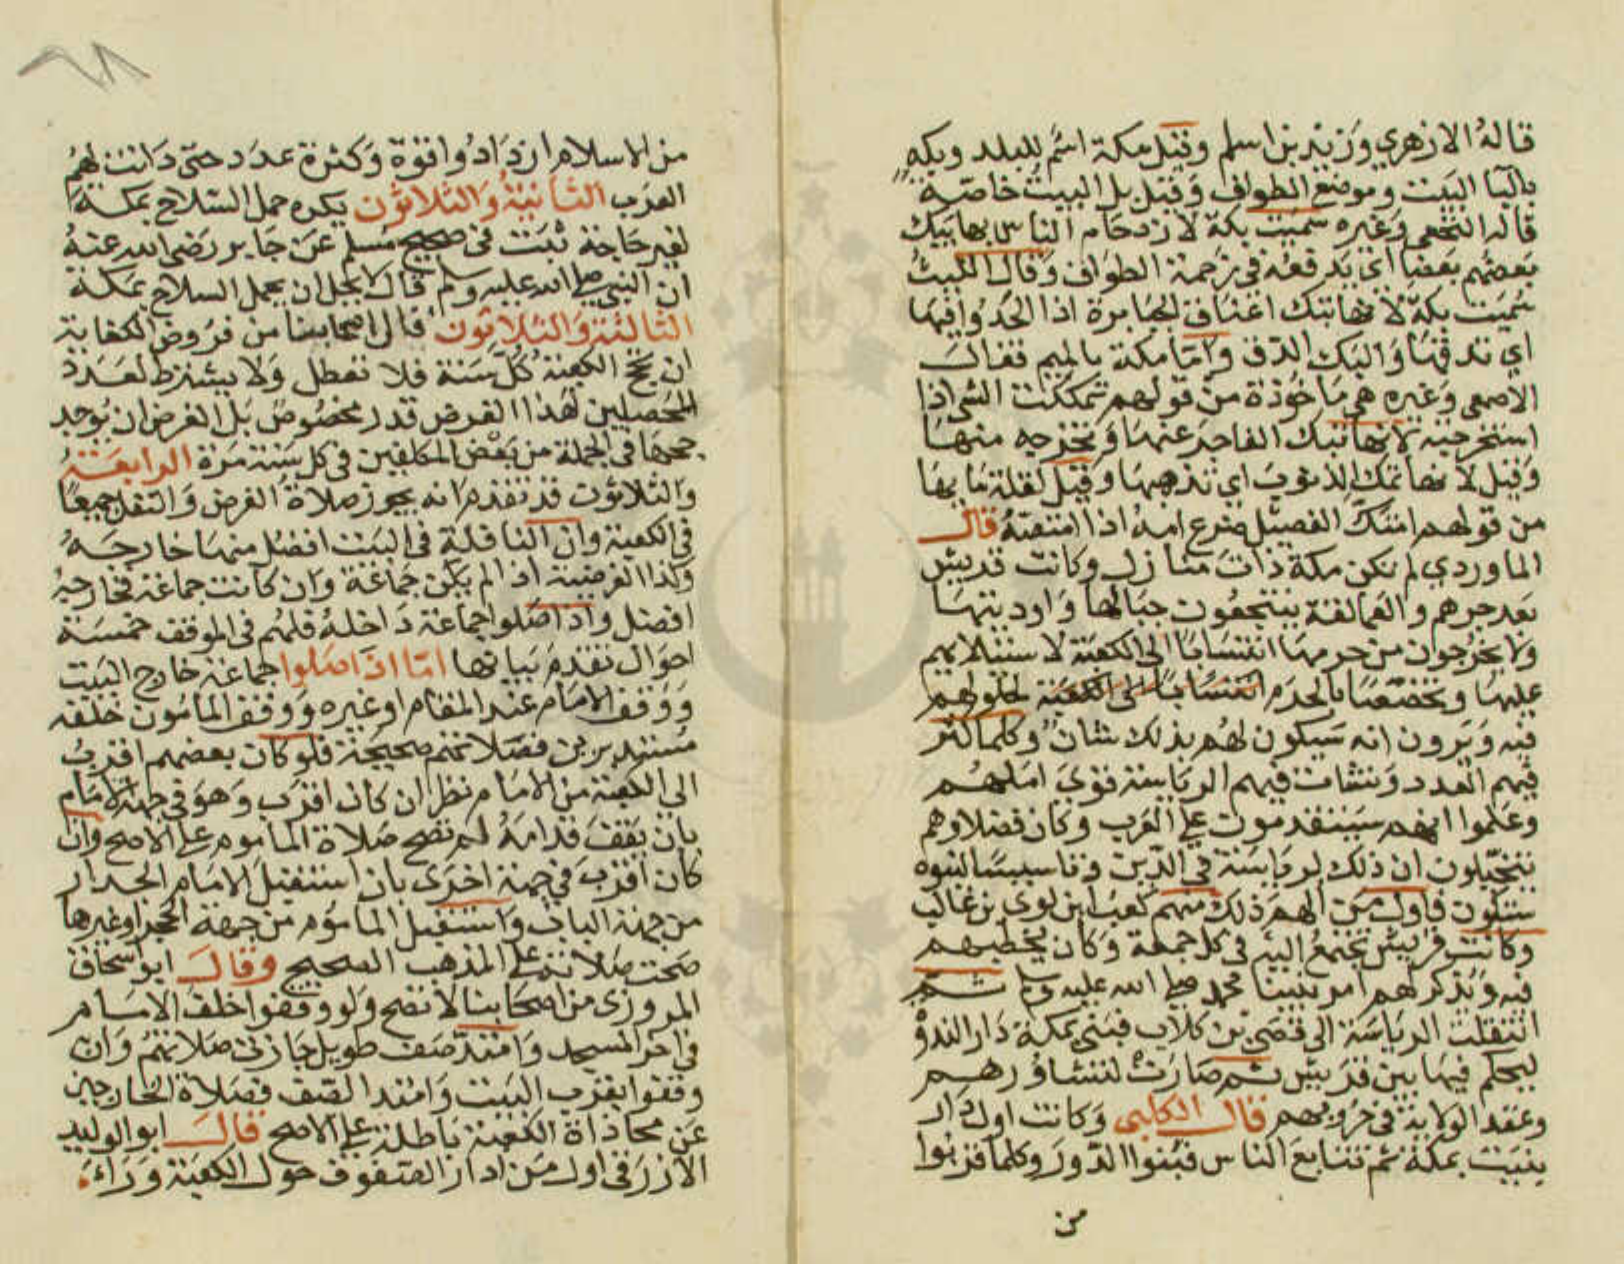 قاله الازهري وزيد بن اسلم وقيل مكة اسم للبلد وبكة
بالبا البيت وموضع الطواف وقيل بل البيت خاصة
قاله النخعي وغيره سميت بكة لازدحام الناس بها يبك
بعضهم بعضا اي يدفعه في زحمة الطواف وقال الليث
سميت بكة لانها تبك اعناق الجبابرة اذا الحدوا فيها
اي تدقها والبك الدق واما مكة بالميم فقال
الاصمعي وغيره هي ماخوذة من قولهم تمككت الشي اذا
استخرجته لانها تمك الفاجر عنها وتخرجه منها
وقيل لانها تمك الذنوب اي تذهبها وقيل لقلة ما بها
من قولهم امتك الفصيل ضرع امه اذا امتصه قال
الماوردي لم تكن مكة ذات منازل وكانت قريش
بعد جرهم والعمالقة ينتجعون جبالها واوديتها
ولا يخرجون من حرمها انتسابا الى الكعبة لاستيلائهم
عليها وتخصصا بالحرم انتسابا الى الكعبة لحلولهم
فيه ويرون انه سيكون لهم بذلك شان وكلما كثر
فيهم العدد ونشات فيهم الرياسة قوي املهم
وعلموا انهم سيتقدمون على العرب وكان فضلاوهم
يتخيلون ان ذلك لرياسة في الدين وتاسيسا لنبوة
ستكون فاول من الهم ذلك منهم كعب ابن لوي بن غالب
وكانت قريش تجتمع اليه في كل جمعة وكان يخطبهم
فيه ويذكر لهم امر نبينا محمد صلى الله عليه وسلم ثم
انتقلت الرياسة الى قصي بن كلاب فبنى بمكة دار الندوة
ليحكم فيها بين قريش ثم صارت لتشاورهم
وعقد الولاية في حروبهم قال الكلبي وكانت اول دار
بنيت بمكة ثم تتابع الناس فبنوا الدور وكلما قربوا
من
من الاسلام ازدادوا قوة وكثرة عدد حتى دانت لهم
العرب الثانية والثلاثون يكره حمل السلاح بمكة
لغير حاجة ثبت في صحيح مسلم عن جابر رضي الله عنه
ان النبي صلى الله عليه وسلم قال لا يحل ان يحمل السلاح بمكة
الثالثة والثلاثون قال اصحابنا من فروض الكفاية
ان تحج الكعبة كل سنة فلا تعطل ولا يشترط لعدد
المحصلين لهذا الفرض قدر مخصوص بل الغرض ان يوجد
حجها في الجملة من بعض المكلفين في كل سنة مرة الرابعة
والثلاثون قد تقدم انه يجوز صلاة الفرض والنفل جميعا
في الكعبة وان النافلة في البيت افضل منها خارجه
وكذا الفريضة اذا لم يكن جماعة وان كانت جماعة فخارجه
افضل واذا صلوا جماعة داخله فلهم في الموقف خمسة
احوال تقدم بيانها اما اذا صلوا جماعة خارج البيت
ووقف الامام عند المقام او غيره ووقف المامون خلفه
مستديرين فصلاتهم صحيحة فلو كان بعضهم اقرب
الى الكعبة من الامام نظر ان كان اقرب وهو في جهة الامام
بان يقف قدامه لم تصح صلاة الماموم على الاصح وان
كان اقرب في جهة اخرى بان استقبل الامام الجدار
من جهة الباب واستقبل الماموم من جهة الحجر او غيرها
صحت صلاته على المذهب الصحيح وقال ابو اسحاق
المروزي من اصحابنا لا تصح ولو وقفوا خلف الامام
في اخر المسجد وامتد صف طويل جازت صلاتهم وان
وقفوا بقرب البيت وامتد الصف فصلاة الخارجين
عن محاذاة الكعبة باطلة على الاصح قال ابو الوليد
الازرقي اول من ادار الصفوف حول الكعبة وراء